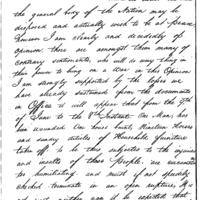 the general body of the Natives may be
disposed and actually wish to be at Peace
Pension I am clearly and decidedly of
opinion there are amongst them many of
contrary sentiments, who will do any thing in
their power to bring on a War in this Opinion
I am strongly supported by the losses we
have already sustained from the documents
in Office it will appear that from the 9th
of June to the 8th Instant One Man has
been wounded One house burnt, Nineteen Horses
and sundry articles of Household furniture
taken off to be thus subjected to the injuries
and insults of these People, are
humiliating, and must if not speedily
checked terminate in an open rupture,
it be expected that